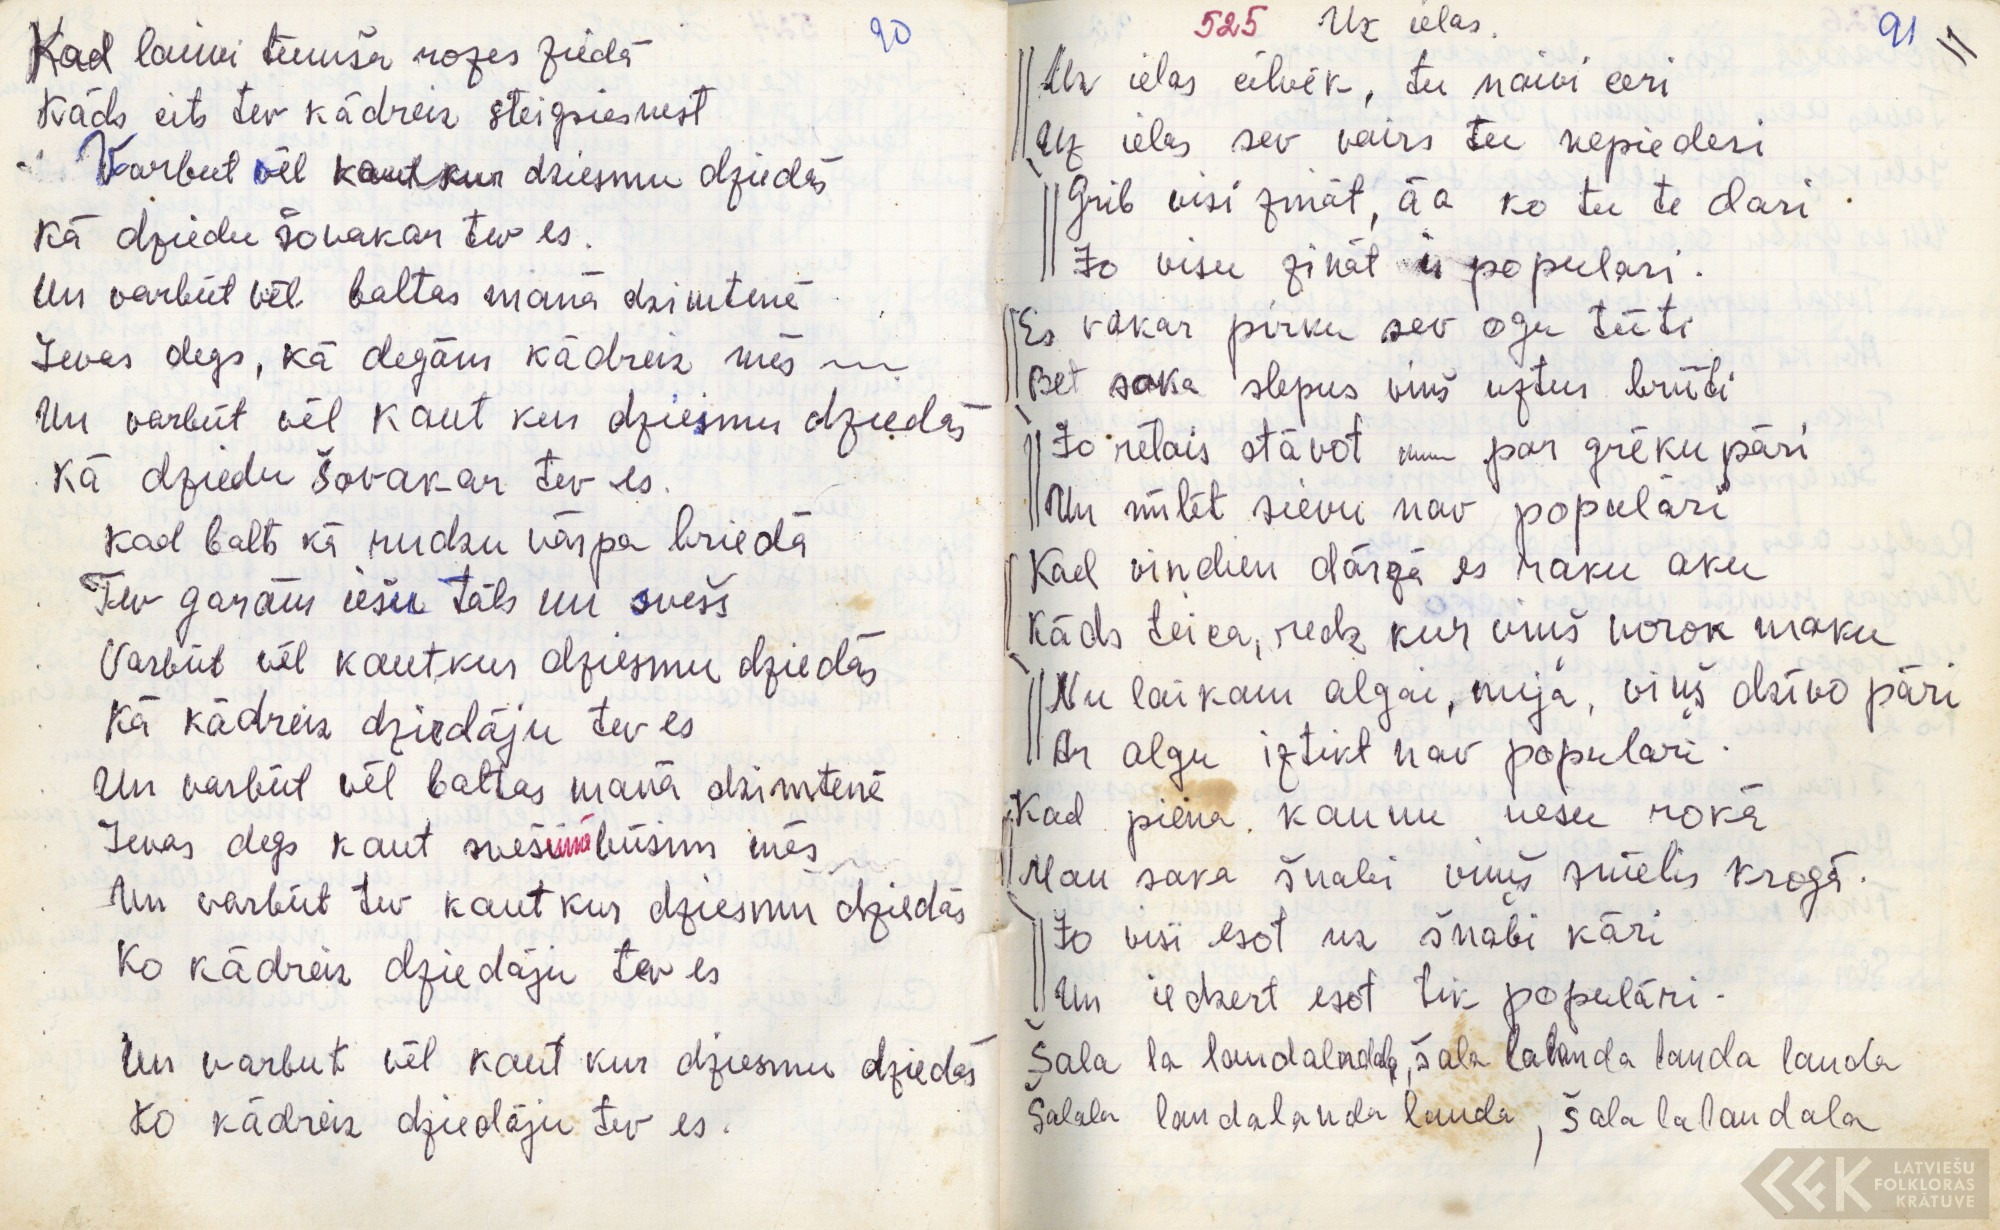 90
Kad laimi tumša rozes ziedā
Kāds cits tev kādreiz steigsies nest
Varbūt vēl kaut kur dziesmu dziedās
Kā dziedu šovakar tev es.
Un varbūt vēl baltas manā dzimtenē
Ievas degs, kā degām kādreiz mēs
Un varbūt vēl kaut kur dziesmu dziedās
Kā dziedu šovakar tev es.
Kad balts kā rudzu vārpa briedā
Tev garām iešu tāls un svešs
Varbūt vēl kautkur dziesmu dziedās
Kā kādreiz dziedāju tev es
Un varbūt vēl baltas manā dzimtenē
Ievas degs kaut svešumā būsim mēs
Un varbūt tev kaut kur dziesmu dziedās
Ko kādreiz dziedāju tev es
Un varbut vēl kaut kur dziesmu dziedās
Ko kādreiz dziedāju tev es.
525 Uz ielas. 91
Uz ielas cilvēk, tu naivi ceri
Uz ielas sev vairs tu nepiederi
Grib visi zināt, āa ko tu te dari
Jo visu zināt ir populari.
Es vakar pirku sev ogu tūti
Bet saka slepus viņš uztur brūti
Jo rētais stāvot par grēku pāri
Un mīlēt sievu nav populāri
Kad vindien dārzā es raku aku
Kāds teica, redz kur viņš norok maku
Nu laikam algai, mijā, viņš dzīvo pāri
Ar algu iztikt nav populari.
Kad piena kannu nesu rokā
Man saka šnabi viņš smēlis krogā.
Jo visi esot uz šnabi kāri
Un iedzert esot tik populāri.
Šala la landalandala, šala lalanda landa landa
Šalala landalanda landa, šala lalandala
LATVIEŠU
FOLKLORAS
KRĀTUVE